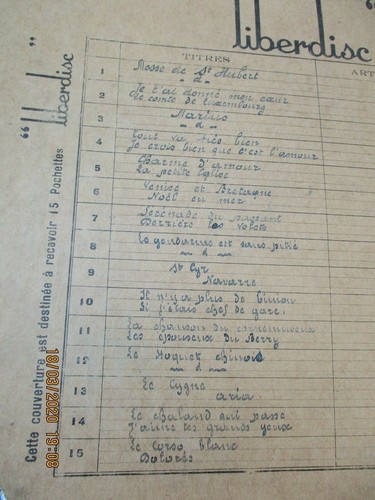 "liberdisc"
liberdisc
TITRES
ART
1 Messe de St Hubert
- d -
2 Je t'ai donné mon cœur
Le comte de Luxembourg
3 Marius
- d -
4 Tout va très bien
Je crois bien que c'est l'amour
5 Charme d'amour
La petite Église
6 Venise et Bretagne
Noël en mer
7 Sérénade du pavant
Derrière les volets
8 Le gendarme est sans pitié
- d -
9 St Cyr
Navarre
10 Il n'y a plus de
Si j'étais chef de gare.
11 La chanson du cornemuseux
Les du Berry
12 Le Hoquet chinois
- d -
13 Le Cygne
aria.
14 Le chaland qui passe
J'aime tes grands yeux
15 Le Corso blanc
Dolorès
Cette couverture est destinée à recevoir 15 Pochettes
18/03/2020 19:08